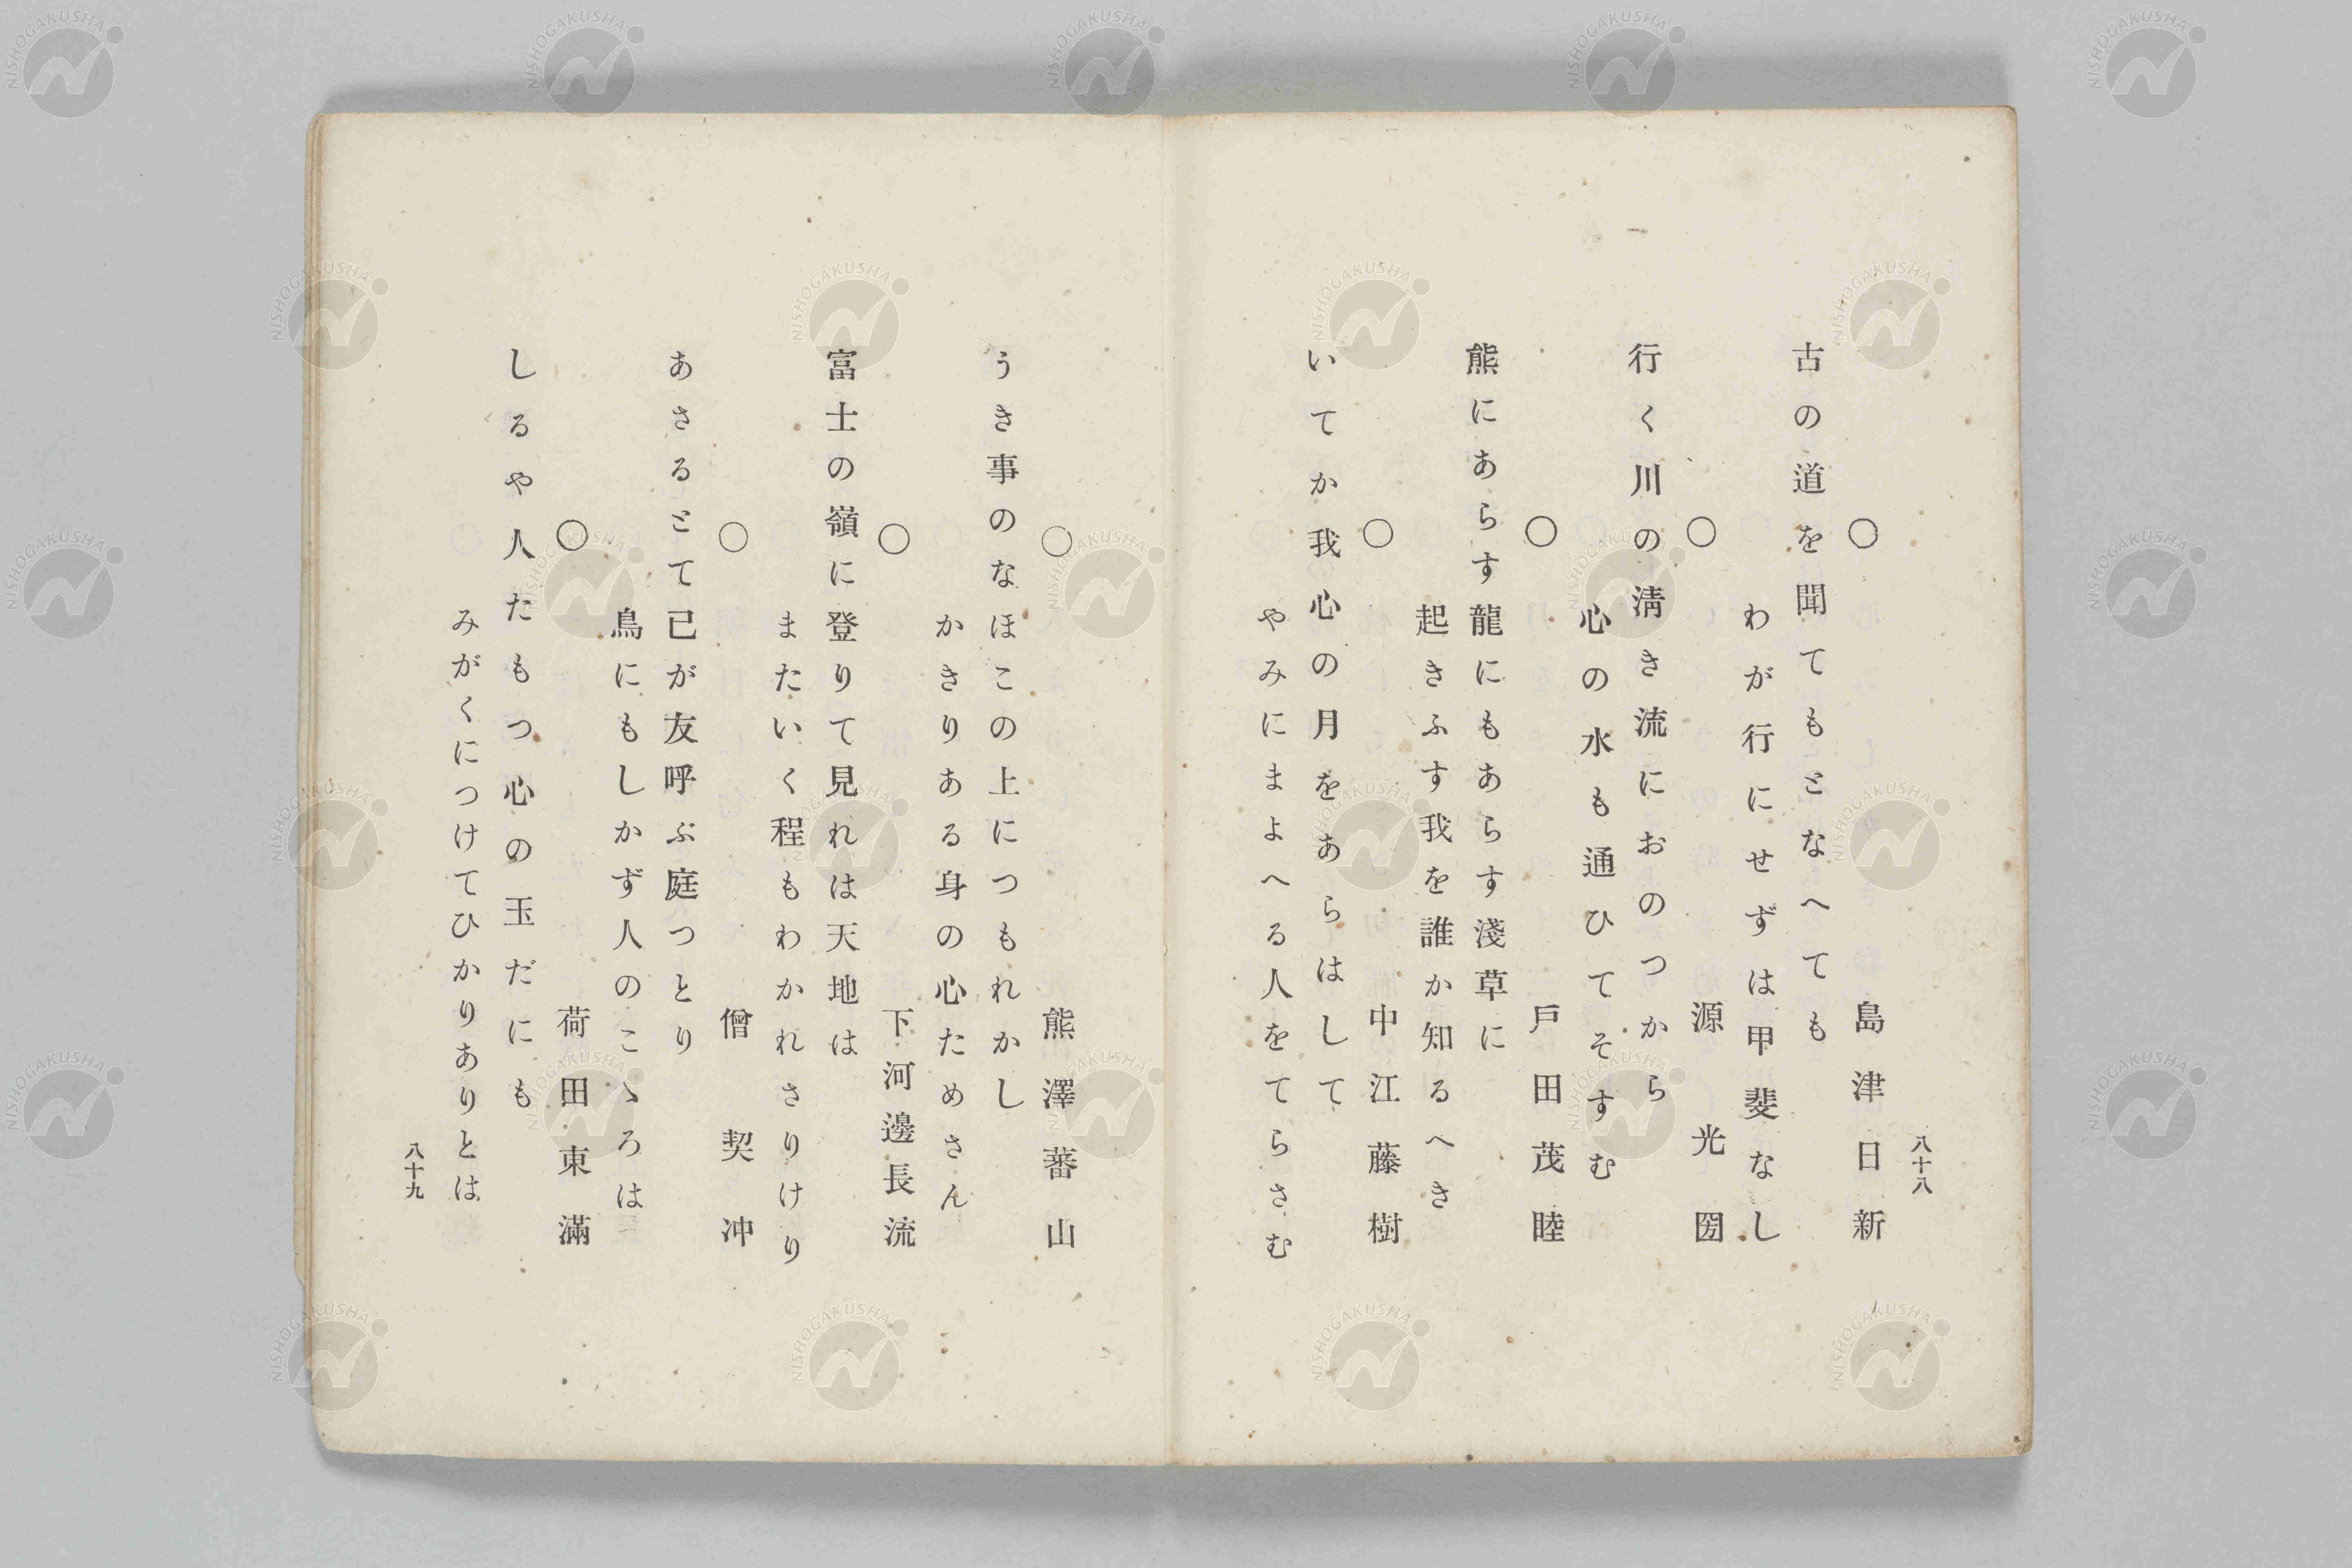 八十八
○ 島津日新
古の道を聞てもとなへても
わが行にせずは甲斐なし
○ 源光圀
行く川の淸き流におのつから
心の水も通ひてそすむ
○ 戸田茂睦
熊にあらす龍にもあらす淺草に
起きふす我を誰か知るへき
○ 中江藤樹
いてか我心の月をあらはして
やみにまよへる人をてらさむ
○ 熊澤蕃山
うき事のなほこの上につもれかし
かきりある身の心ためさん
○ 下河邊長流
富士の嶺に登りて見れは天地は
またいく程もわかれさりけり
○ 僧契冲
あさるとて己が友呼ぶ庭つとり
鳥にもしかず人のこゝろは
○ 荷田東滿
しるや人たもつ心の玉だにも
みがくにつけてひかりありとは
八十九
NISHOGAKUSHA